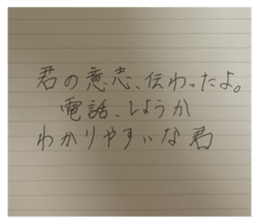 君の意志、伝わったよ。
電話、しようか
わかりやすいな君